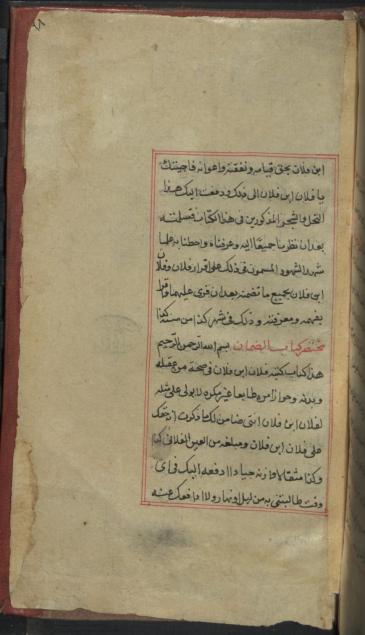 ابن فلان بحق قيامه ونفقته واعوانه فاجبتك
يا فلان ابن فلان الى ذلك ودفعت اليك هذا
النخل والشجر المذكورين فى هذا الكتاب فتسلمته
بعد ان نظرنا جميعا اليه وعرفناه واحطنا به علما
شهد الشهود المسمون فى ذلك على اقرار فلان وفلان
ابن فلان بجميع ما تضمنه بعد ان قرى عليهما واقرا
بفهمه ومعرفته وذلك فى شهر كذا من سنة كذا
مختصر كتاب الضمان بسم الله الرحمن الرحيم
هذا كتاب كتبه فلان ابن فلان فى صحة من عقله
وبدنه وجواز امر طايعا غير مكره لا يولى على مثله
لفلان ابن فلان اننى ضامن لك ما ذكرت ان حقك
على فلان ابن فلان ومبلغه من العين الفلانى كذا
وكذا مثقالا وازنة جيادا ادفعه اليك فى اى
وقت طالبتنى به من ليل او نهار ولا ادافعك عنه